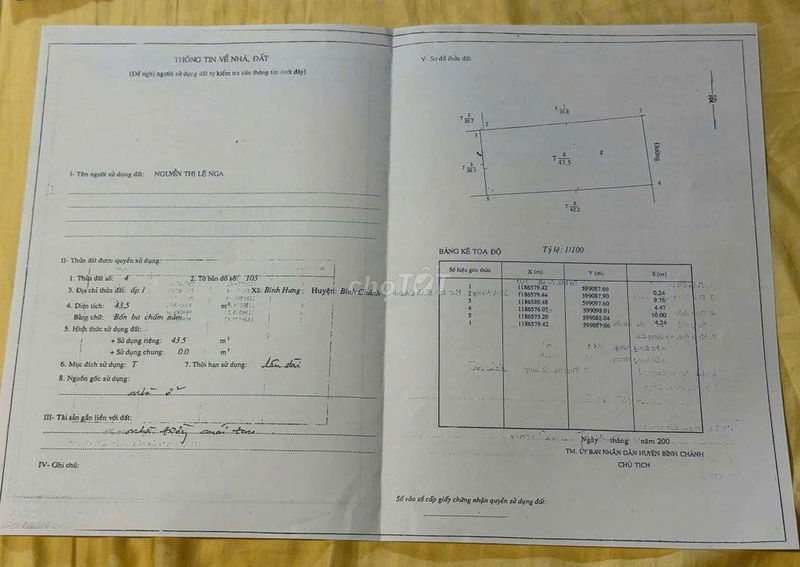 THÔNG TIN VỀ NHÀ, ĐẤT
(Đề nghị người sử dụng đất tự kiểm tra các thông tin dưới đây)
I- Tên người sử dụng đất: NGUYỄN THỊ LÊ NGA
II- Thửa đất được quyền sử dụng:
1. Thửa đất số: 4 2. Tờ bản đồ số: 105
3. Địa chỉ thửa đất: ấp 1 Xã: Bình Hưng Huyện: Bình Chánh
4. Diện tích: 43,5 m²
Bằng chữ: Bốn ba chấm năm
5. Hình thức sử dụng đất:
+ Sử dụng riêng: 43.5 m²
+ Sử dụng chung: 0.0 m²
6. Mục đích sử dụng: T 7. Thời hạn sử dụng: lâu dài
8. Nguồn gốc sử dụng:
nhà ở
III- Tài sản gắn liền với đất:
IV- Ghi chú:
V- Sơ đồ thửa đất:
1
2
3
4
5
T 4/43,5
Đường
B
BẢNG KÊ TOẠ ĐỘ Tỷ lệ: 1/100
Số hiệu góc thửa X (m) Y (m) S (m)
1 1186579.42 599087.66
0.24
2 1186579.44 599087.90
9.76
3 1186580.48 599097.60
4.47
4 1186576.03 599098.01
10.00
5 1186575.20 599088.04
4.24
1 1186579.42 599087.66
Ngày tháng năm 200
TM. ỦY BAN NHÂN DÂN HUYỆN BÌNH CHÁNH
CHỦ TỊCH
Số vào sổ cấp giấy chứng nhận quyền sử dụng đất:
chợTỐT